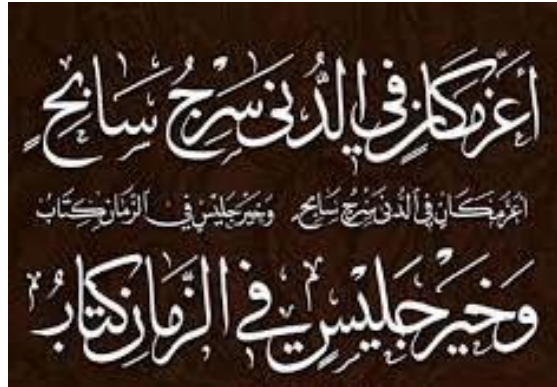 أَعَزُّ مَكَانٍ فِي الدُّنَى سَرْجُ سَابِحٍ
أَعَزُّ مَكَانٍ فِي الدُّنَى سَرْجُ سَابِحٍ وَخَيْرُ جَلِيْسٍ فِي الزَّمَانِ كِتَابُ
وَخَيْرُ جَلِيْسٍ فِي الزَّمَانِ كِتَابُ